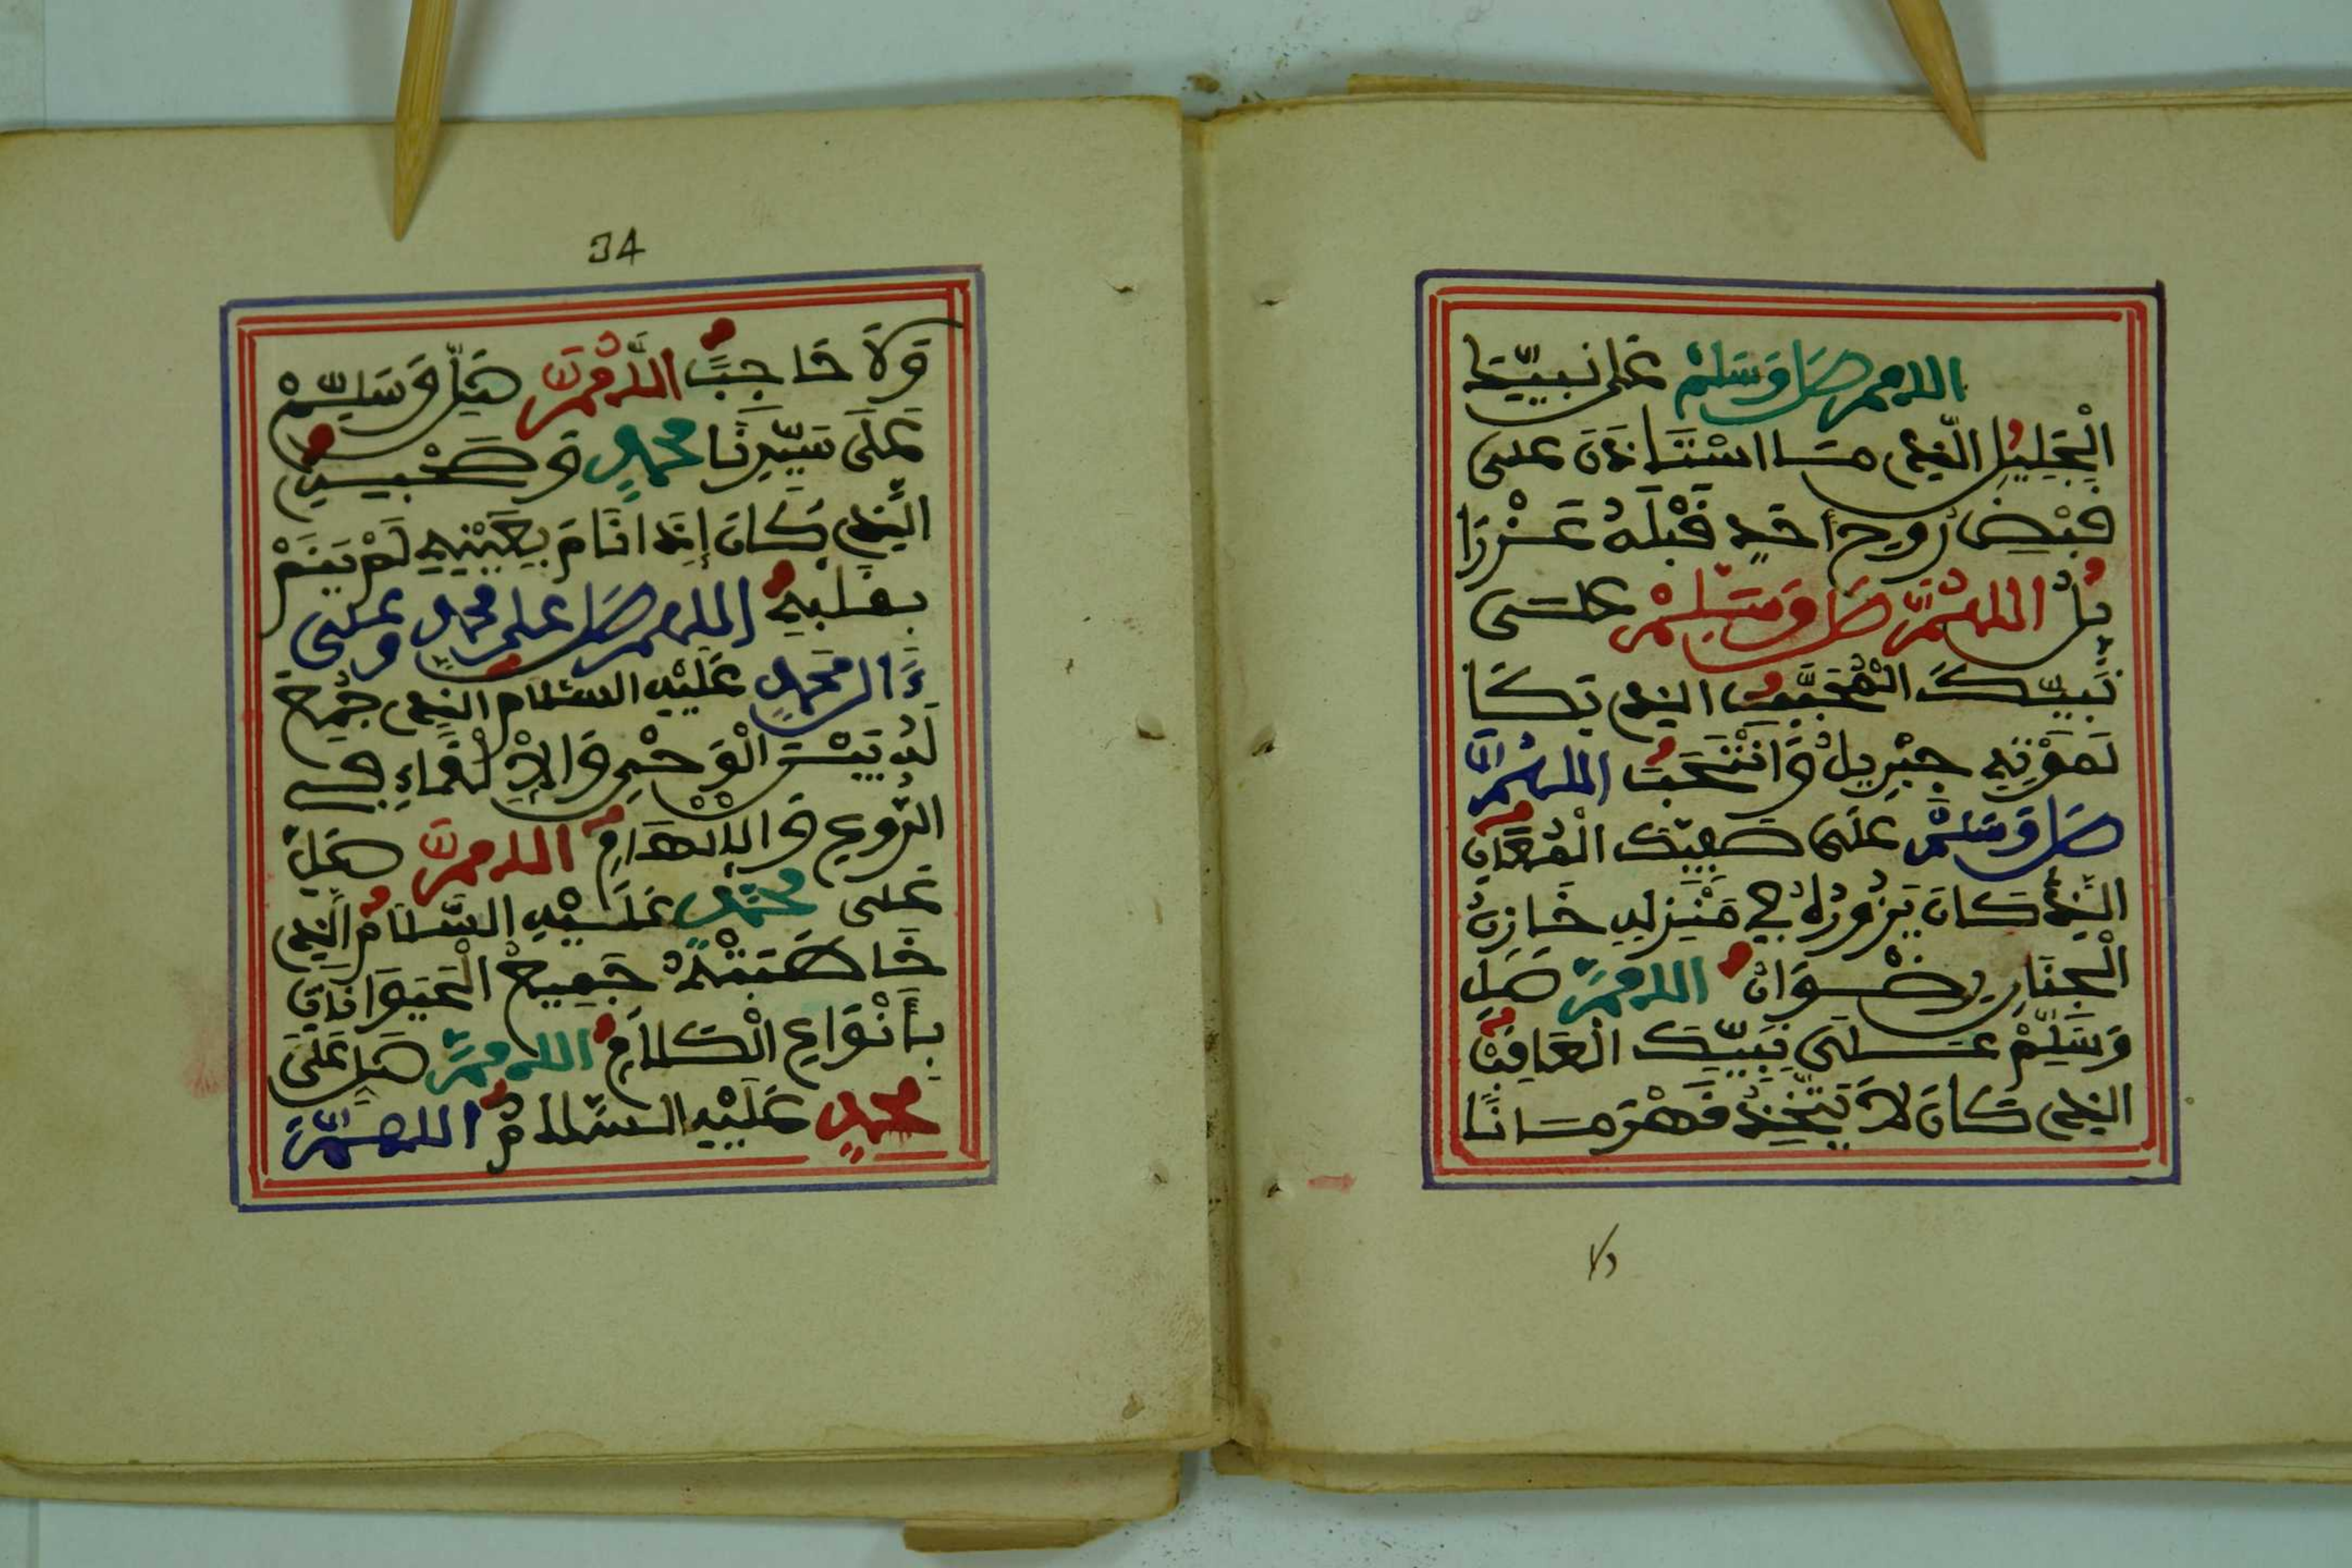 اللهم صَل وَسَلِمْ عَلى نبِيِّنَا
الْجَلِيلِ الَّذِي مَا اسْتَاذَنَ عَلَى
قَبْضِ رُوحِ أَحَدٍ قَبْلَهُ عَزْرَا
يلُ اللهُمَّ صَل وَسَلِمْ عَلَى
نَبِيِّكَ الْمُحَبَّبِ الذِي بَكَا
لِمَوْتِهِ جِبْرِيلُ وَانْتَحَبَ اللهُمَّ
صَل وَسَلِمْ عَلَى صَفِيِّكَ
الَّذِي كَانَ يَزُورُهُ فِي مَنْزِلِهِ خَازِنُ
الْجِنَانِ رِضْوَانُ اللهمَّ صَلِ
وَسَلِّمْ عَلَى نَبِيِّكَ الْعَاقِبْ
الذِي كَانَ لَا يَتَّخِذُ قَهْرَمَانًا
34
وَلَا حَاجِبًا اللَّهُمَّ صَلِّ وَسَلِّمْ
عَلَى سَيِّدِنَا مُحَمدٍ وَحَبِيبِهِ
الَّذِي كَانَ إِذَا نَامَ بِعَيْنَيْهِ لَمْ يَنَمْ
بقلبِهِ اللهم صَل على محمدٍ وعلى
ءَالِ مُحَمدٍ عَلَيْهِ السَّلَام الذِي جُمِعَ
لَهُ بَيْنَ الْوَحْيِ وَالِالْقَاءِ فِي
الرُّوعِ وَالِالْهَامِ اللهمَّ صَلِ
عَلى مُحَمَّدٍ عَلَيْهِ السَّلَامُ الَّذِي
خَاطَبَتْهُ جَمِيعُ الْحَيَوَانَاتِ
بِأَنْوَاعِ الْكَلَامِ اللهمَّ صَلِ عَلَى
مُحمدٍ عَلَيْهِ السَّلَامُ اللهُمَّ